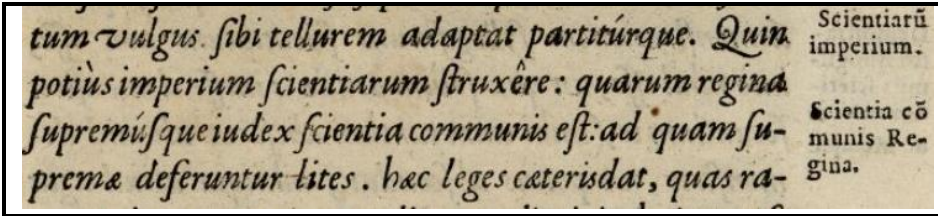 tum vulgus sibi tellurem adaptat partitúrque. Quin
potiùs imperium ſcientiarum ſtruxêre: quarum regina
ſupremúſque iudex ſcientia communis eſt: ad quam ſu-
premæ deferuntur lites. hæc leges cæteris dat, quas ra-
Scientiarũ
imperium.
Scientia cõ
munis Re-
gina.